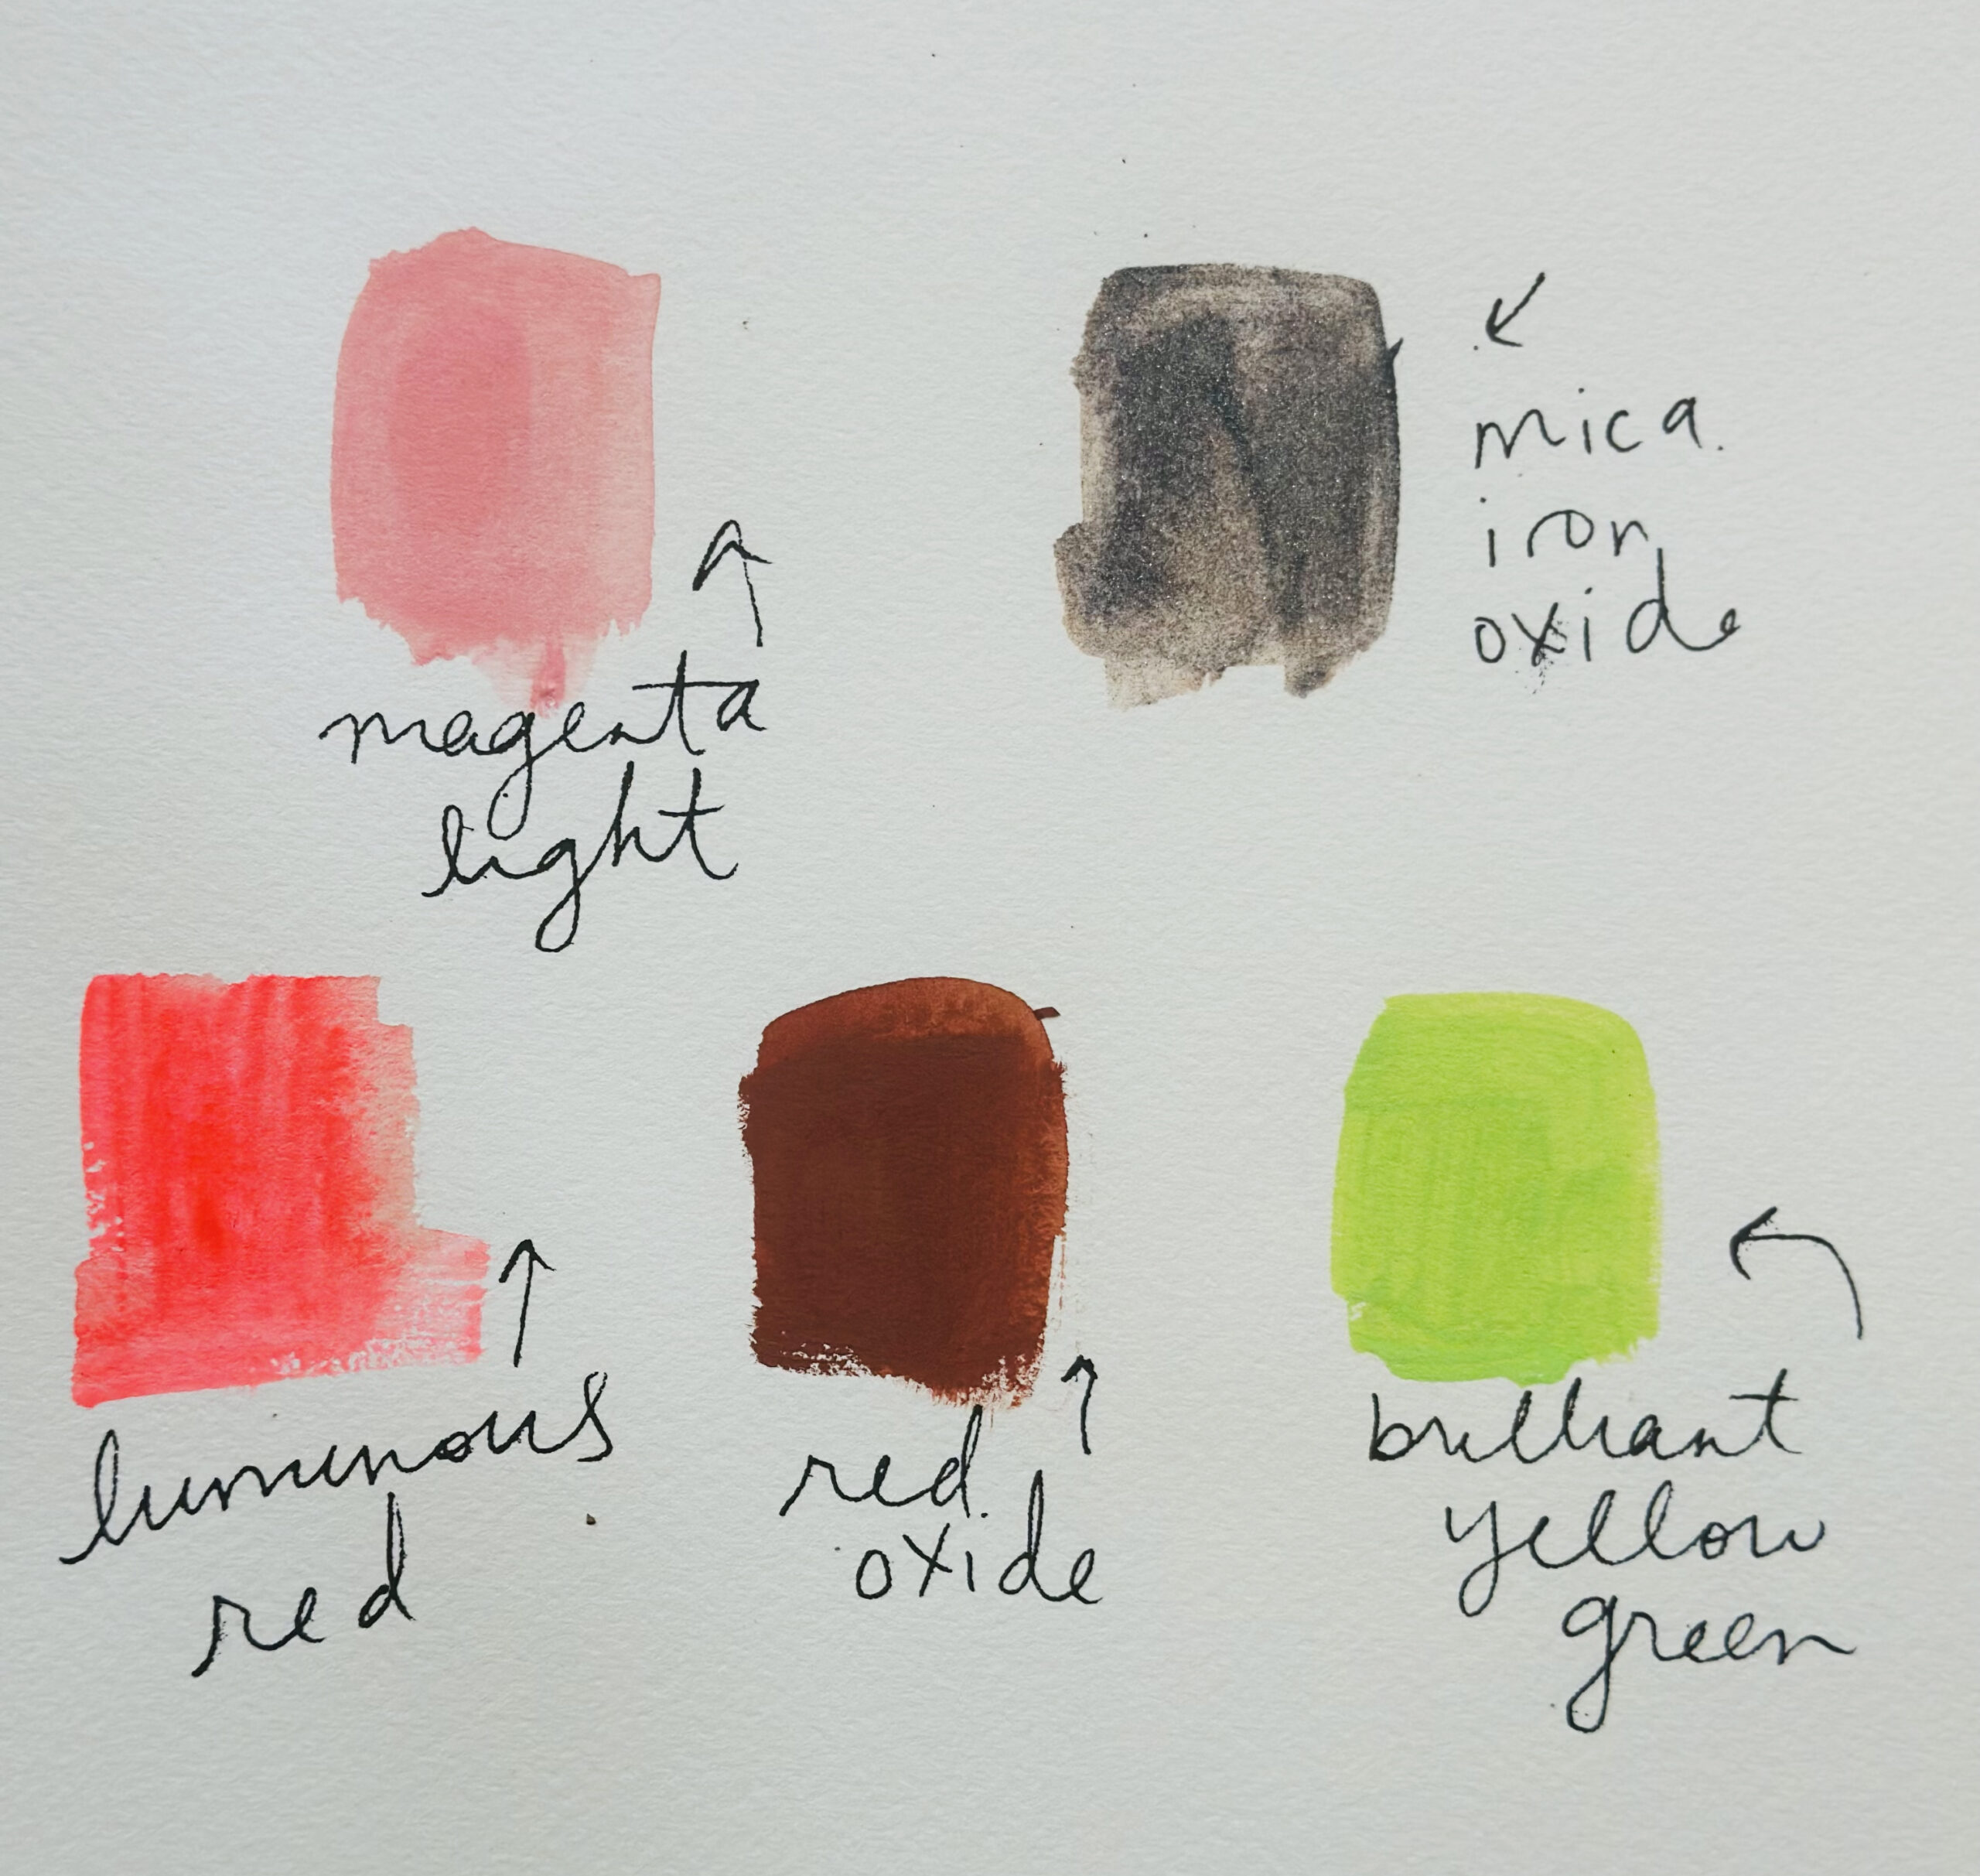 magenta
light
mica
iron
oxide
luminous
red
red
oxide
brilliant
yellow
green